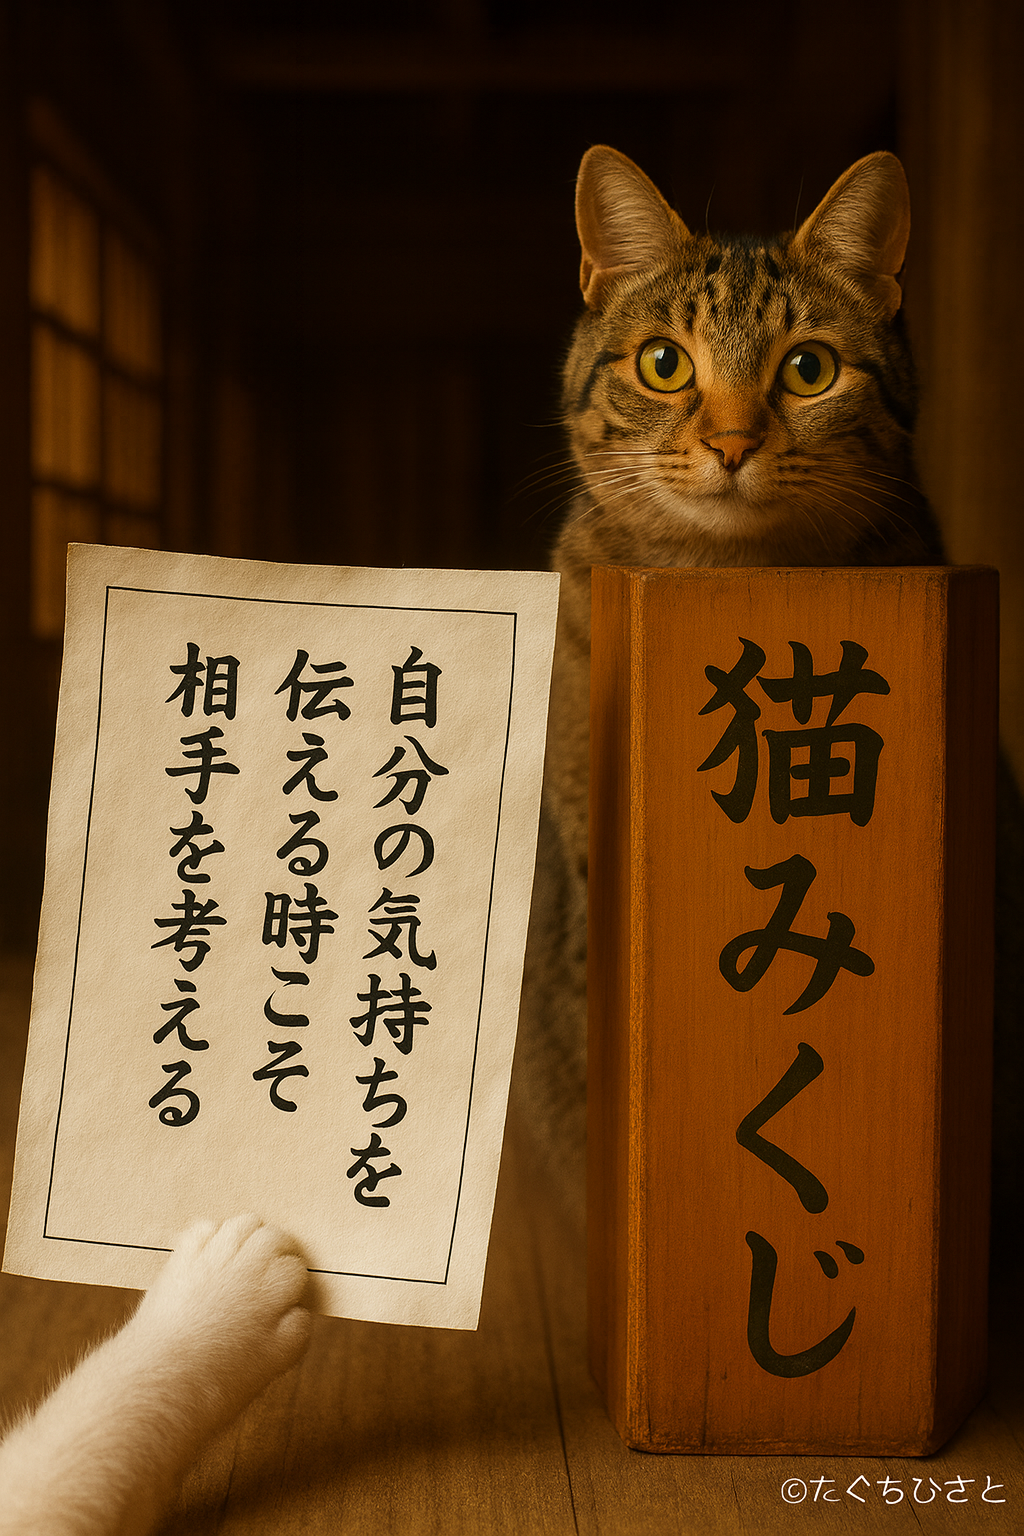 自分の気持ちを
伝える時こそ
相手を考える
猫みくじ
©たぐちひさと